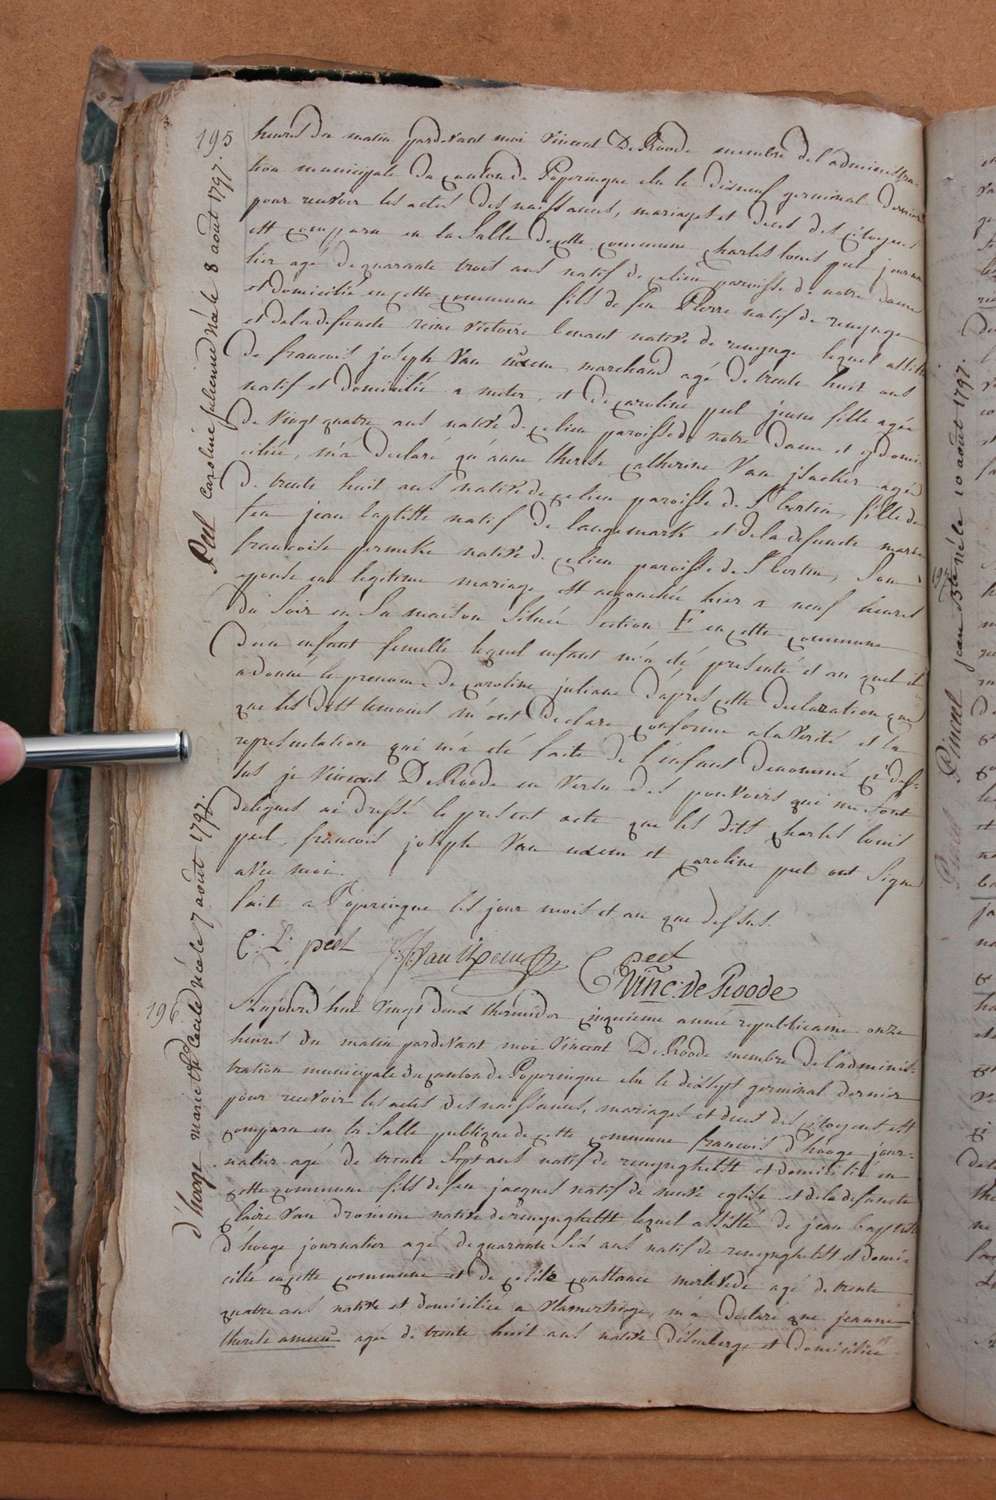 195
Peel Caroline julienne née le 8 août 1797.
heures du matin pardevant moi Vincent De Roode membre de l'administra-
tion municipale du canton de Poperingue elu le dixneuf germinal dernier
pour recevoir les actes des naissances, mariages et deces des citoyens
est comparu en la salle de cette commune charles louis peel journa-
lier agé de quarante trois ans natif de ce lieu paroisse de notre dame
et domicilié en cette commune fils de feu Pierre natif de reninge
et de la defuncte reine victoire native de reninge lequel assisté
de francois joseph Van uxem marchand agé de trente huit ans
natif et domicilié a , et de caroline peel jeune fille agée
de vingt quatre ans native de ce lieu paroisse de notre dame et y domi-
ciliée, m'a declaré qu'anne therese catherine Van jsacker agée
de trente huit ans native de ce lieu paroisse de St bertin, fille de
feu jean baptiste natif de langemark et de la defuncte marie
francoise native de ce lieu paroisse de St bertin, son
epouse en legitime mariage, est accouchée hier a neuf heures
du soir en sa maison située section F en cette commune
d'un enfant femelle lequel enfant m'a été présenté et au quel il
a donné le prenom de caroline juliane d'apres cette declaration que
que les dits temoins m'ont declaré conforme a la verité et la
representation qui m'a été faite de l'enfant denommé ci des-
sus je Vincent De Roode en vertu des pouvoirs qui me sont
delegués ai dressé le present acte que les dits charles louis
peel, francois joseph Van uxem et caroline peel ont signé
avec moi.
fait a Poperingue les jour mois et an que dessus.
C: L: peel F J Van Uxem C peel
Vinc: de Roode
196
d'hooge marie cecile née le 7 août 1797.
Aujourd'hui vingt deux thermidor cinquieme année republicaine onze
heures du matin pardevant moi Vincent De Roode membre de l'adminis-
tration municipale du canton de Poperingue elu le dixsept germinal dernier
pour recevoir les actes des naissances, mariages et deces des citoyens est
comparu en la salle publique de cette commune francois d'hooge jour-
nalier agé de trente sept ans natif de reninghelst et domicilié en
cette commune fils de feu jacques natif de neuve eglise et de la defuncte
claire Van dromme native de reninghelst lequel assisté de jean baptiste
d'hooge journalier agé de quarante six ans natif de reninghelst et domi-
cilié en cette commune et de constance merlevede agé de trente
quatre ans native et domiciliée a vlamertinge, m'a declaré que jeanne
therese ameeuw agée de trente huit ans native et domiciliée
jean Bte né le 10 août 1797.